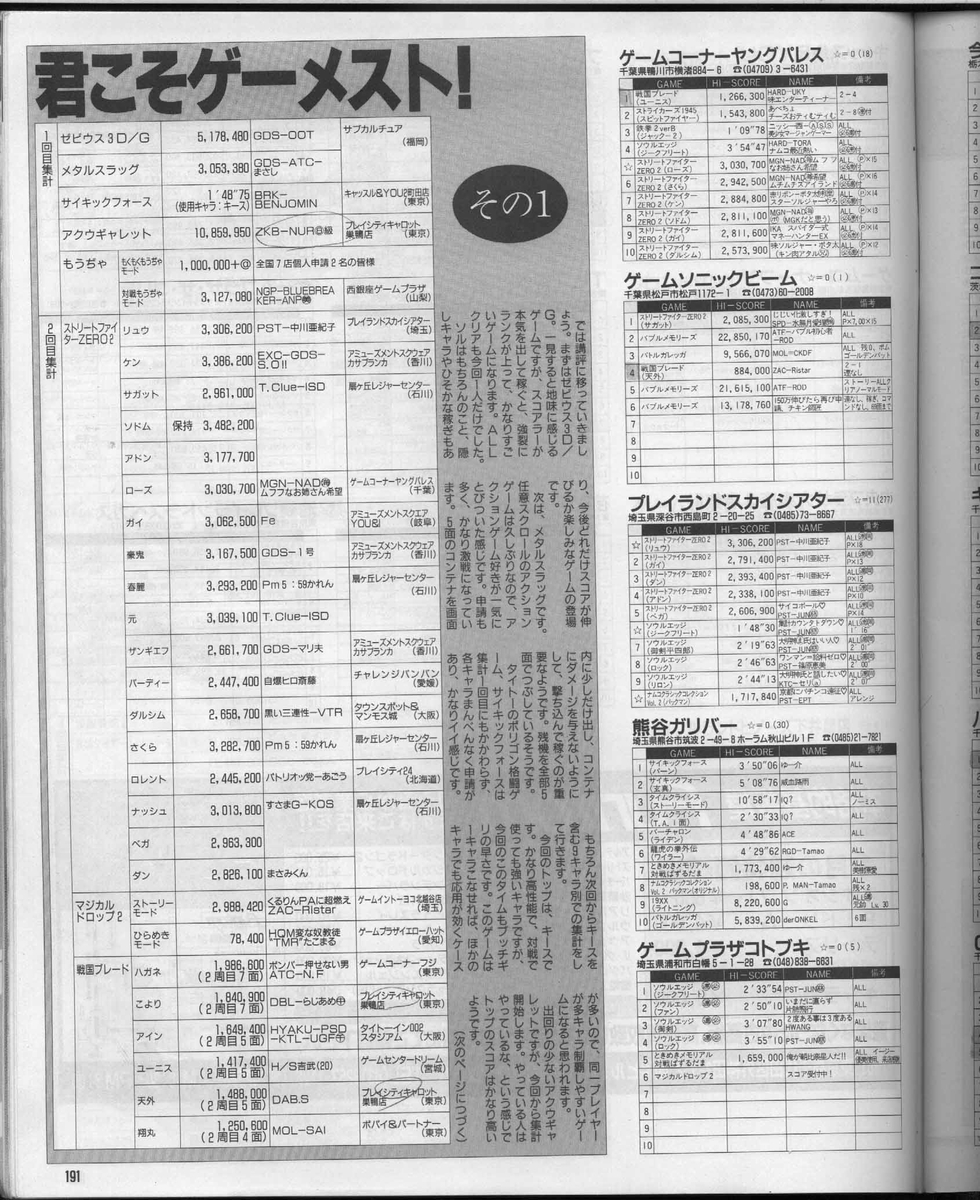 君こそゲーメスト!
その1
1回目集計
ゼビウス3D/G 5,178,480 GDS-OOT サブカルチュア(福岡)
メタルスラッグ 3,053,380 GDS-ATC-まさし
サイキックフォース 1'48"75(使用キャラ:キース) BRK-BENJOMIN キャッスル&YOU2町田店(東京)
アクウギャレット 10,859,950 ZKB-NUR 級 プレイシティキャロット巣鴨店(東京)
もうぢゃ もくもくもうぢゃモード 1,000,000+@ 全国7店個人申請2名の皆様
対戦もうぢゃモード 3,127,080 NGP-BLUEBREAKER-ANP 西銀座ゲームプラザ(山梨)
2回目集計
ストリートファイターZERO2 リュウ 3,306,200 PST-中川亜紀子 プレイランドスカイシアター(埼玉)
ケン 3,386,200 EXC-GDS-S.O!! アミューズメントスクウェアカサブランカ(香川)
サガット 2,961,000 T.Clue-ISD 扇ヶ丘レジャーセンター(石川)
ソドム 保持 3,482,200
アドン 3,177,700
ローズ 3,030,700 MGN-NAD ムフフなお姉さん希望 ゲームコーナーヤングパレス(千葉)
ガイ 3,062,500 Fe アミューズメントスクエアYOU&I(岐阜)
豪鬼 3,167,500 GDS-1号 アミューズメントスクウェアカサブランカ(香川)
春麗 3,293,200 Pm5:59かれん 扇ヶ丘レジャーセンター(石川)
元 3,039,100 T.Clue-ISD
ザンギエフ 2,661,700 GDS-マリ夫 アミューズメントスクウェアカサブランカ(香川)
バーディー 2,447,400 自爆ヒロ斎藤 チャレンジバンバン(愛媛)
ダルシム 2,658,700 黒い三連性-VTR タウンスポット&マンモス城(大阪)
さくら 3,282,700 Pm5:59かれん 扇ヶ丘レジャーセンター(石川)
ロレント 2,445,200 パトリオッ党-あごう プレイシティ24(北海道)
ナッシュ 3,013,800 すさまG-KOS 扇ヶ丘レジャーセンター(石川)
ベガ 2,963,300
ダン 2,826,100 まさみくん
マジカルドロップ2 ストーリーモード 2,988,420 くるりんPAに超燃え ZAC-Ristar ゲームイントーヨコ北越谷店(埼玉)
ひらめきモード 78,400 HQM変な奴教徒"TMR"たこまる ゲームプラザイエローハット(愛知)
戦国ブレード ハガネ 1,986,600(2周目7面) ボンバー押せない男 ATC-N.F ゲームコーナーフジ(東京)
こより 1,840,900(2周目7面) DBL-らじあめ プレイシティキャロット巣鴨店(東京)
アイン 1,649,400(2周目5面) HYAKU-PSD-KTL-UGF タイトーイン002スタジアム(大阪)
ユーニス 1,417,400(2周目5面) H/S吉武(20) ゲームセンタードリーム(宮城)
天外 1,488,000(2周目5面) DAB.S プレイシティキャロット巣鴨店(東京)
翔丸 1,250,600(2周目4面) MOL-SAI ポパイ&パートナー(東京)
では講評に移っていきまし
ょう。まずはゼビウス3D/
G。一見すると地味に感じる
ゲームですが、スコアラーが
本気を出して稼ぐと、強裂に
ランクが上って、かなりすご
いゲームになります。ALL
クリアも今回1人だけでした。
ソルはもちろんのこと、隠
しキャラやひそかな稼ぎもあ
り、今後どれだけスコアが伸
びるか楽しみなゲームの登場
です。
次は、メタルスラッグです。
任意スクロールのアクション
ゲームは久しぶりなので、ア
クションゲーム好きが一気に
とびついた感じです。申請も
多く、かなり激戦になってい
ます。5面のコンテナを画面
内に少しだけ出し、コンテナ
にダメージを与えないように
して、撃ち込んで稼ぐのが重
要なようです。残機を全部5
面でつぶしているそうです。
タイトーのポリゴン格闘ゲ
ーム、サイキックフォースは
集計1回目にもかかわらず、
各キャラまんべんなく申請が
あり、かなりイイ感じです。
もちろん次回からキースを
含む9キャラ別での集計をし
て行きます。
今回のトップは、キースで
す。かなり高性能で、対戦で
使っても強いキャラですが、
今回のこのタイムもブッチギ
リの早さです。このゲームは
1キャラこなせれば、ほかの
キャラでも応用が効くケース
が多いので、同一プレイヤー
が多キャラ制覇しやすいゲー
ムになると思われます。
出回りの少ないアクウギャ
レットですが、今回から集計
開始します。やっている人は
やっているな、という感じで
トップのスコアはかなり高い
ようです。
(次のページにつづく)
ゲームコーナーヤングパレス ☆=0(18)
千葉県鴨川市横渚884-6 ☎(04709)3-6431
GAME HI-SCORE NAME 備考
1 戦国ブレード(ユーニス) 1,266,300 HARD-UKY 味エンターティーナー 2-4
2 ストライカーズ1945(スピットファイヤー) 1,543,800 あべちょ
3 鉄拳2verB(ジャック-2) 1'09"78 ALL
4 ソウルエッジ(ジークフリート) 3'54"47 HARD-TORA ナムコ最近熱い ALL
☆ ストリートファイターZERO2(ローズ) 3,030,700 MGN-NAD ムフフなお姉さん希望 ALL P×15
6 ストリートファイターZERO2(さくら) 2,942,500 ムチムチアイランド ALL P×16
7 ストリートファイターZERO2(ケン) 2,884,800 ALL P×14
8 ストリートファイターZERO2(ソドム) 2,811,100 MGN-NAD (MGKだと思う) ALL P×13
9 ストリートファイターZERO2(ガイ) 2,811,600 IKA スパイダー式マネーハンターEX ALL P×14
10 ストリートファイターZERO2(ダルシム) 2,573,900 味ソルジャー・ポタ太 ALL P×12
ゲームソニックビーム ☆=0(1)
千葉県松戸市松戸1172-1 ☎(0473)60-2008
GAME HI-SCORE NAME 備考
1 ストリートファイターZERO2(サガット) 2,085,300 じじい化激しすぎ! ALL P×7,00×15
2 バブルメモリーズ 22,850,170 ATF-バブル初心者-ROD ALL
3 バトルガレッガ 9,566,070 MOL=CKDF ALL, 残0, ボムゴールデンバット
4 戦国ブレード(天外) 884,000 ZAC-Ristar 2-1 連なし
5 バブルメモリーズ 21,615,100 ATF-ROD ストーリーALLクリアノーマルモード
6 バブルメモリーズ 13,178,760 150万伸びたら再び申請、チキン師匠
7
8
9
10
プレイランドスカイシアター ☆=11(277)
埼玉県深谷市西島町2-20-25 ☎(0485)73-8667
GAME HI-SCORE NAME 備考
☆ ストリートファイターZERO2(リュウ) 3,306,200 PST-中川亜紀子 ALL P×18
2 ストリートファイターZERO2(ガイ) 2,791,400 PST-中川亜紀子 ALL P×13
3 ストリートファイターZERO2(ダン) 2,393,400 PST-中川亜紀子 ALL P×12
4 ストリートファイターZERO2(アドン) 2,338,100 PST-中川亜紀子 ALL P×10
5 ストリートファイターZERO2(ベガ) 2,606,900 サイコボール♡ PST-JUN ALL P×14
☆ ソウルエッジ(ジークフリート) 1'48"30 集計カウントダウン♡ PST-JUN ALL 1'16"
☆ ソウルエッジ(御剣平四郎) 2'19"63 PST-JUN ALL 2'01"
8 ソウルエッジ(ロック) 2'46"63 ワンマン=給料ゼロ♡ PST-篠原恵美 ALL 2'00"
9 ソウルエッジ(リロン) 2'44"13 ALL 2'07"
☆ ナムコクラシックコレクションVol.2(パックマン) 1,717,840 京都にパチンコ遠征♡ PST-EPT ALL アレンジ
熊谷ガリバー ☆=0(30)
埼玉県熊谷市筑波2-49-8ホーラム秋山ビル1F ☎(0485)21-7821
GAME HI-SCORE NAME 備考
1 サイキックフォース(バーン) 3'50"06 ゆー介 ALL
2 サイキックフォース(玄真) 5'08"76 ALL
3 タイムクライシス(ストーリーモード) 10'58"17 IQ? ALL ノーミス
4 タイムクライシス(T.A.1面) 2'30"33 IQ? ALL
5 バーチャロン(ライデン) 4'48"86 ACE ALL
6 龍虎の拳外伝(ワイラー) 4'29"62 RGD-Tamao ALL
7 ときめきメモリアル対戦ぱずるだま 1,773,400 ゆー介 ALL
8 ナムコクラシックコレクションVol.2(パックマンオリジナル) 198,600 P.MAN-Tamao ALL 残×2
9 19XX(ライトニング) 8,220,600 G ALL 元帥 Lv.30
10 バトルガレッガ(ゴールデンバット) 5,839,200 derONKEL 6面
ゲームプラザコトブキ ☆=0(5)
埼玉県浦和市白幡5-1-28 ☎(048)838-6831
GAME HI-SCORE NAME 備考
1 ソウルエッジ(ジークフリート) 2'33"54 PST-JUN ALL
2 ソウルエッジ(ファン) 2'50"10 いまだに直らず ALL
3 ソウルエッジ(御剣) 3'07"80 2度ある事は3度ある HWANG ALL
4 ソウルエッジ(ロック) 3'55"10 PST-JUN ALL
5 ときめきメモリアル対戦ぱずるだま 1,659,000 俺が朝比奈星人だ!! ALL イージー
6 マジカルドロップ2 スコア受付中!
7
8
9
10
191